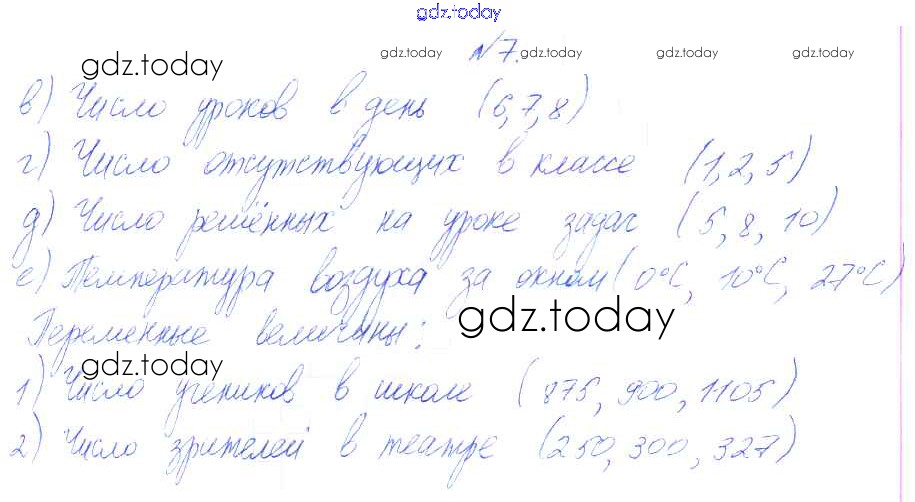 gdz.today
№7.
gdz.today gdz.today gdz.today gdz.today gdz.today
в) Число уроков в день (6,7,8)
г) Число отсутствующих в классе (1, 2, 5)
д) Число решённых на уроке задач (5, 8, 10)
е) Температура воздуха за окном (0°С, 10°С, 27°С)
Переменные величины:
gdz.today
gdz.today
1) Число учеников в школе (875, 900, 1105)
2) Число зрителей в театре (250, 300, 327)